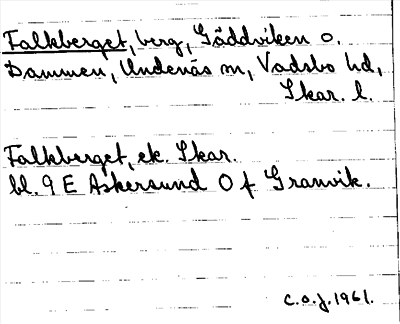 Falkberget, berg, Gäddviken o.
Dammen, Undenäs sn, Vadsbo hd,
Skar. l.
Falkberget, ek. Skar.
bl. 9 E Askersund O f Granvik.
C.O.J. 1961.